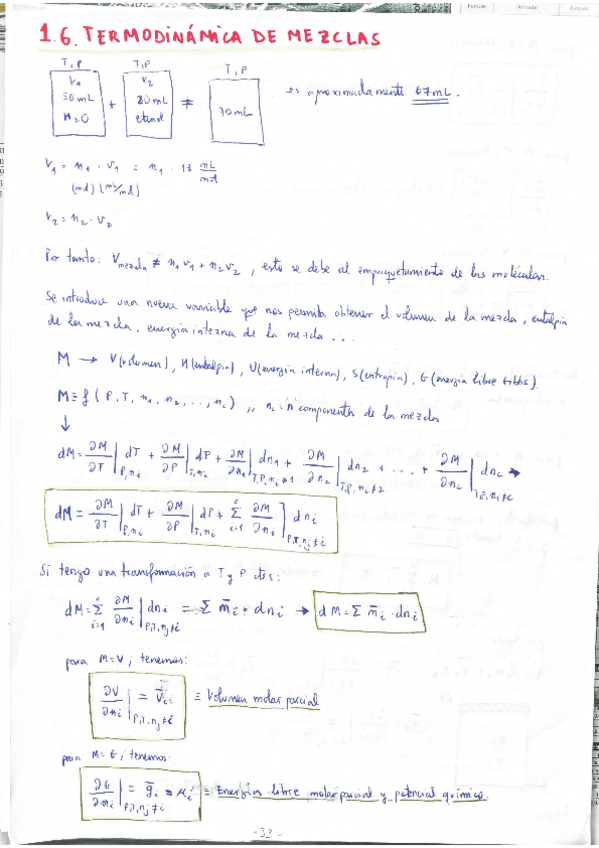 Función Derivada Función
1.6. TERMODINÁMICA DE MEZCLAS
T, P T, P T, P
V₁ 50 mL H₂O + V₂ 20 mL etanol ≠ 70 mL es aproximadamente 67 mL.
V₁ = n₁ · v₁ = n₁ · 18 mL/mol
(mol) (mL/mol)
V₂ = n₂ · v₂
Por tanto: V mezcla ≠ n₁v₁ + n₂v₂, esto se debe al empaquetamiento de las moléculas.
Se introduce una nueva variable que nos permita obtener el volumen de la mezcla, entalpía
de la mezcla, energía interna de la mezcla ...
M → V (volumen), H (entalpia), U (energía interna), S (entropía), G (energía libre Gibbs).
M ≡ f (P, T, n₁, n₂, ..., nc) ,, nc: nº componentes de la mezcla
↓
dM = ∂M/∂T|P,ni dT + ∂M/∂P|T,ni dP + ∂M/∂n₁|T,P,ni≠1 dn₁ + ∂M/∂n₂|T,P,ni≠2 dn₂ + ... + ∂M/∂nc|T,P,ni≠c dnc →
dM = ∂M/∂T|P,ni dT + ∂M/∂P|T,ni dP + Σ i=1 c ∂M/∂ni]P,T,nj≠i dni
Si tengo una transformación a T y P ctes:
dM = Σ i=1 c ∂M/∂ni|P,T,nj≠i dni = Σ m̄i · dni → dM = Σ m̄i · dni
para M=V; tenemos:
∂V/∂ni|P,T,nj≠i = V̄i ≡ Volumen molar parcial
para M=G; tenemos:
∂G/∂ni|P,T,nj≠i = ḡi = μi ≡ Energía libre molar parcial y potencial químico.
-33-